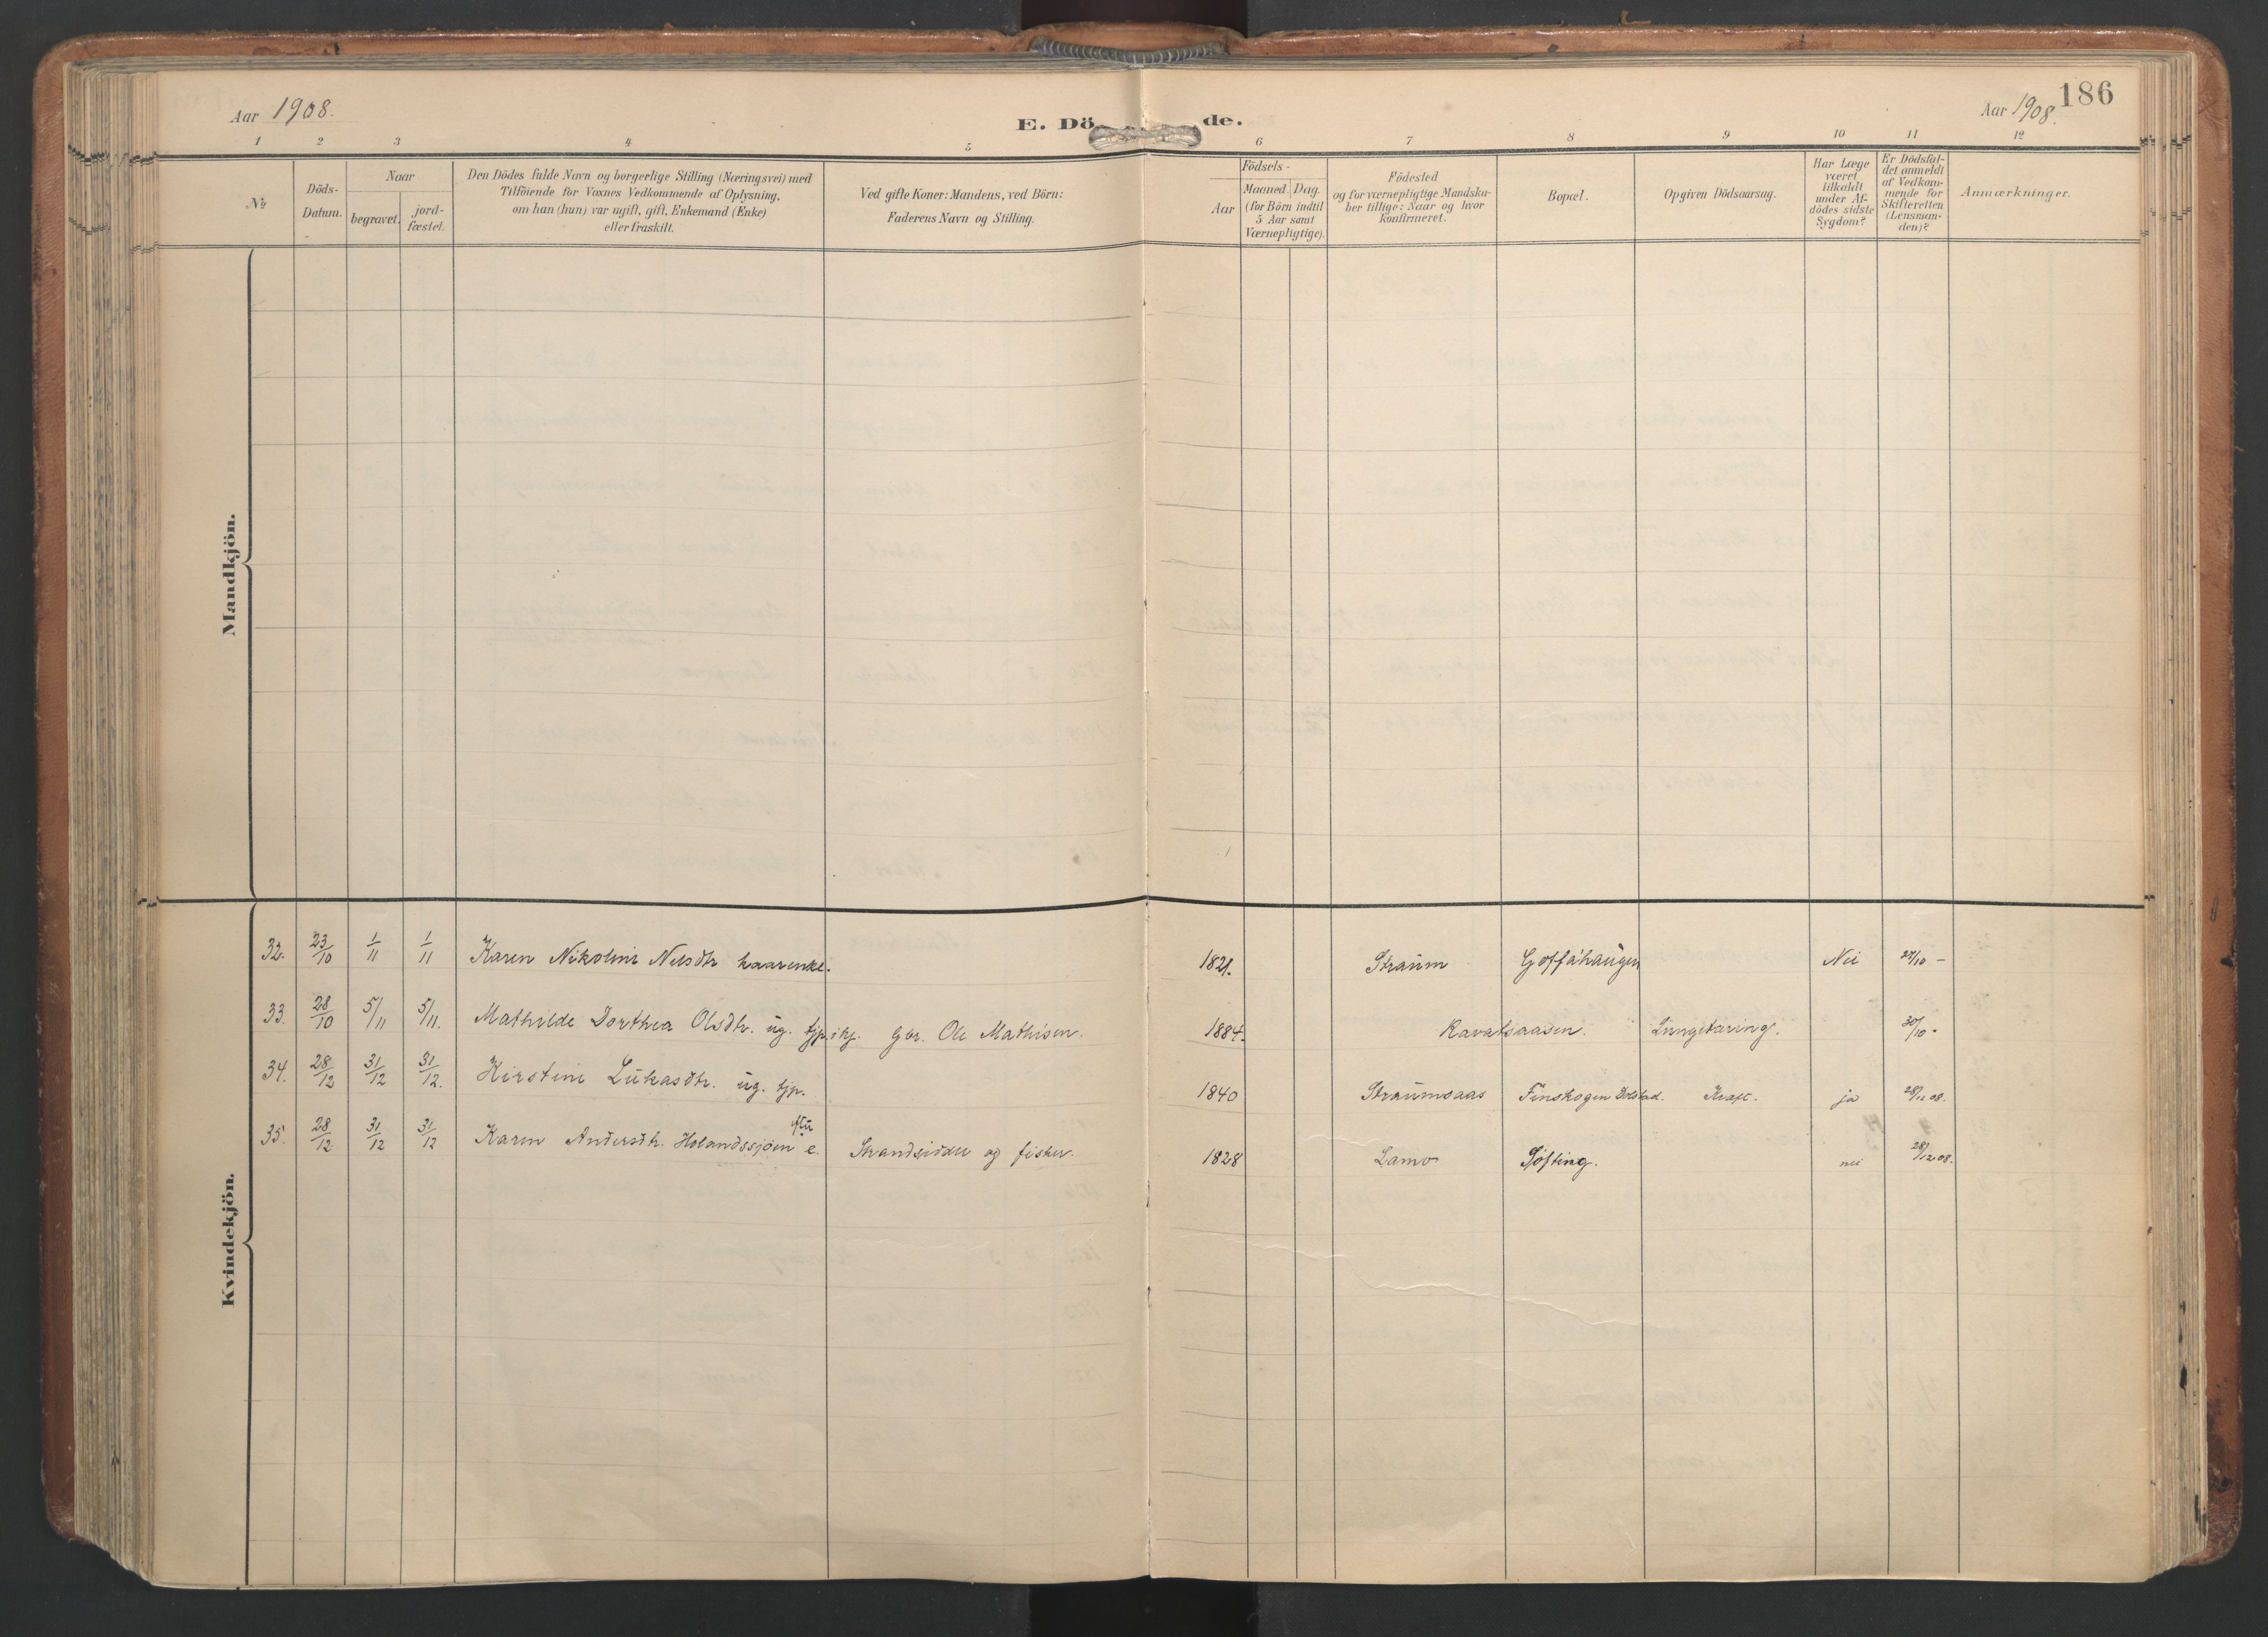 186
Aar 1908. E. Dö de. Aar 1908.
1 2 3 4 5 6 7 8 9 10 11 12
№
Döds-
Datum.
Naar
begravet.
jord-
fæstet.
Den Dödes fulde Navn og borgerlige Stilling (Næringsvei) med
Tilföiende for Voxnes Vedkommende af Oplysning,
om han (hun) var ugift, gift, Enkemand (Enke)
eller fraskilt.
Ved gifte Koner: Mandens, ved Börn:
Faderens Navn og Stilling.
Födsels-
Aar
Maaned. Dag.
(for Börn indtil
5 Aar samt
Værnepligtige).
Födested
og for værnepligtige Mandska-
ber tillige: Naar og hvor
konfirmeret.
Bopæl.
Opgiven Dödsaarsag.
Har Læge
været
tilkaldt
under Af-
dödes sidste
Sygdom?
Er Dödsfal-
det anmeldt
af Vedkom-
mende for
Skifteretten
(Lensman-
den)?
Anmærkninger.
Mandkjön.
Kvindekjön.
32. 23/10 1/11 1/11 Karen Nikoline Nilsdtr kaarenke. 1821. Straum Goffahaugen Nei 27/10 -
33. 28/10 5/11 5/11. Mathilde Dorthea Olsdtr. ug. tjp. gbr. Ole Mathisen. 1884. Ravatsaasen. Lungetæring. 30/10 -
34. 28/12 31/12 31/12. Kirstine Lukasdtr. ug. tjp. 1840 Straumsaas Finskogen Dolstad. Kræft. ja 28/12 08.
35. 28/12 31/12 31/12 Karen Andersdtr. Holandssjøen e. Strandsidder og fisker. 1828 Lamo Søfting. nei 28/12 08.